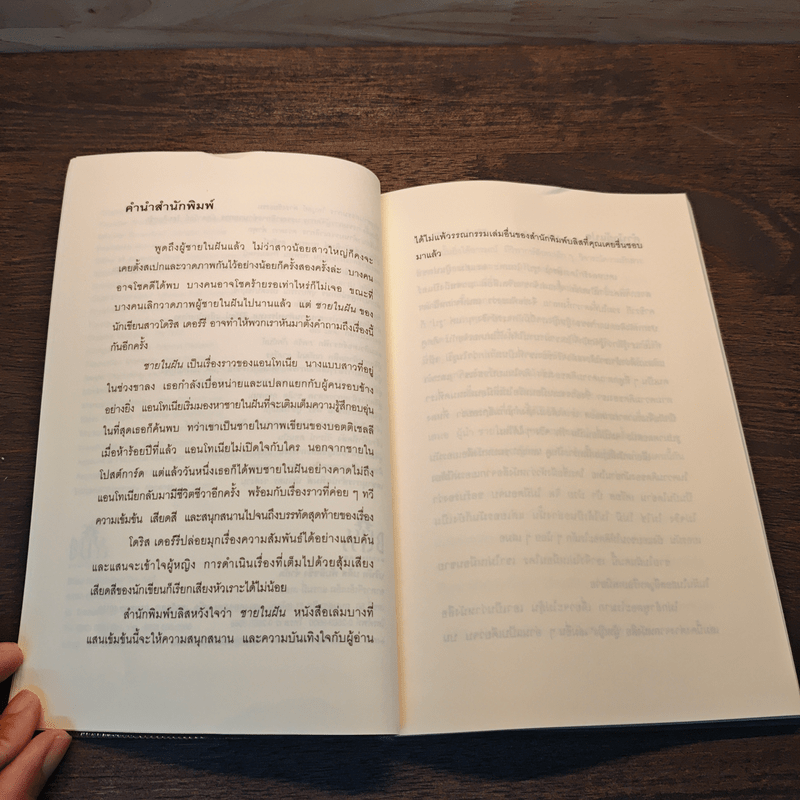 คำนำสำนักพิมพ์
พูดถึงผู้ชายในฝันแล้ว ไม่ว่าสาวน้อยสาวใหญ่ก็คงจะ
เคยตั้งสเปกและวาดภาพกันไว้อย่างน้อยก็ครั้งสองครั้งล่ะ บางคน
อาจโชคดีได้พบ บางคนอาจโชคร้ายรอเท่าไหร่ก็ไม่เจอ ขณะที่
บางคนเลิกวาดภาพผู้ชายในฝันไปนานแล้ว แต่ ชายในฝัน ของ
นักเขียนสาวโดริส เดอร์รี อาจทำให้พวกเราหันมาตั้งคำถามถึงเรื่องนี้
กันอีกครั้ง
ชายในฝัน เป็นเรื่องราวของแอนโทเนีย นางแบบสาวที่อยู่
ในช่วงขาลง เธอกำลังเบื่อหน่ายและแปลกแยกกับผู้คนรอบข้าง
อย่างยิ่ง แอนโทเนียเริ่มมองหาชายในฝันที่จะเติมเต็มความรู้สึกอบอุ่น
ในที่สุดเธอก็ค้นพบ ทว่าเขาเป็นชายในภาพเขียนของบอตติเชลลี
เมื่อห้าร้อยปีที่แล้ว แอนโทเนียไม่เปิดใจกับใคร นอกจากชายใน
โปสต์การ์ด แต่แล้ววันหนึ่งเธอก็ได้พบชายในฝันอย่างคาดไม่ถึง
แอนโทเนียกลับมามีชีวิตชีวาอีกครั้ง พร้อมกับเรื่องราวที่ค่อย ๆ ทวี
ความเข้มข้น เสียดสี และสนุกสนานไปจนถึงบรรทัดสุดท้ายของเรื่อง
โดริส เดอร์รีปล่อยมุกเรื่องความสัมพันธ์ได้อย่างแสบคัน
และแสนจะเข้าใจผู้หญิง การดำเนินเรื่องที่เต็มไปด้วยสุ้มเสียง
เสียดสีของนักเขียนก็เรียกเสียงหัวเราะได้ไม่น้อย
สำนักพิมพ์บลิสหวังใจว่า ชายในฝัน หนังสือเล่มบางที่
แสนเข้มข้นนี้จะให้ความสนุกสนาน และความบันเทิงใจกับผู้อ่าน
ได้ไม่แพ้วรรณกรรมเล่มอื่นของสำนักพิมพ์บลิสที่คุณเคยชื่นชอบ
มาแล้ว